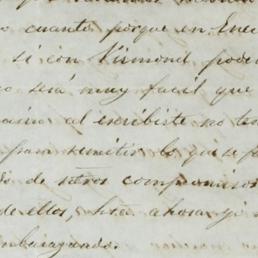 o cuanto porque en Ene
si con Vismond, pode
o será muy facil que
al escribiste no ten
para remitir lo que se
de otros compromisos
de ellos, hta ahora yi
mbarazando.